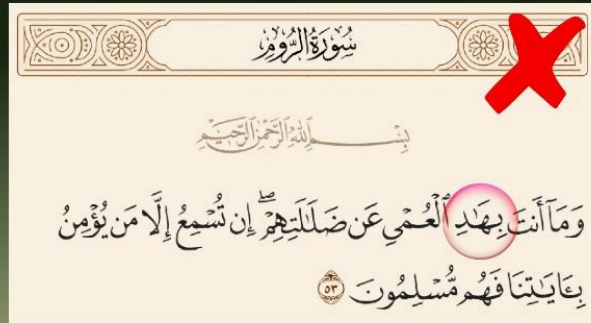 سُورَةُ الرُّومِ
بِسْمِ ٱللَّهِ ٱلرَّحْمَٰنِ ٱلرَّحِيمِ
وَمَآ أَنتَ بِهَٰدِ ٱلْعُمْىِ عَن ضَلَٰلَتِهِمْ ۖ إِن تُسْمِعُ إِلَّا مَن يُؤْمِنُ
بِـَٔايَٰتِنَا فَهُم مُّسْلِمُونَ ٥٣